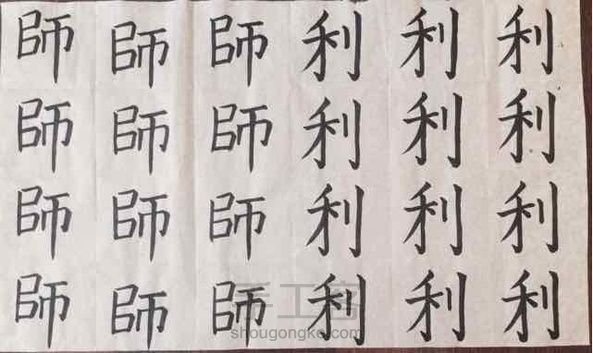 師 師 師 利 利 利
師 師 師 利 利 利
師 師 師 利 利 利
師 師 師 利 利 利
手工客
shougongke.com